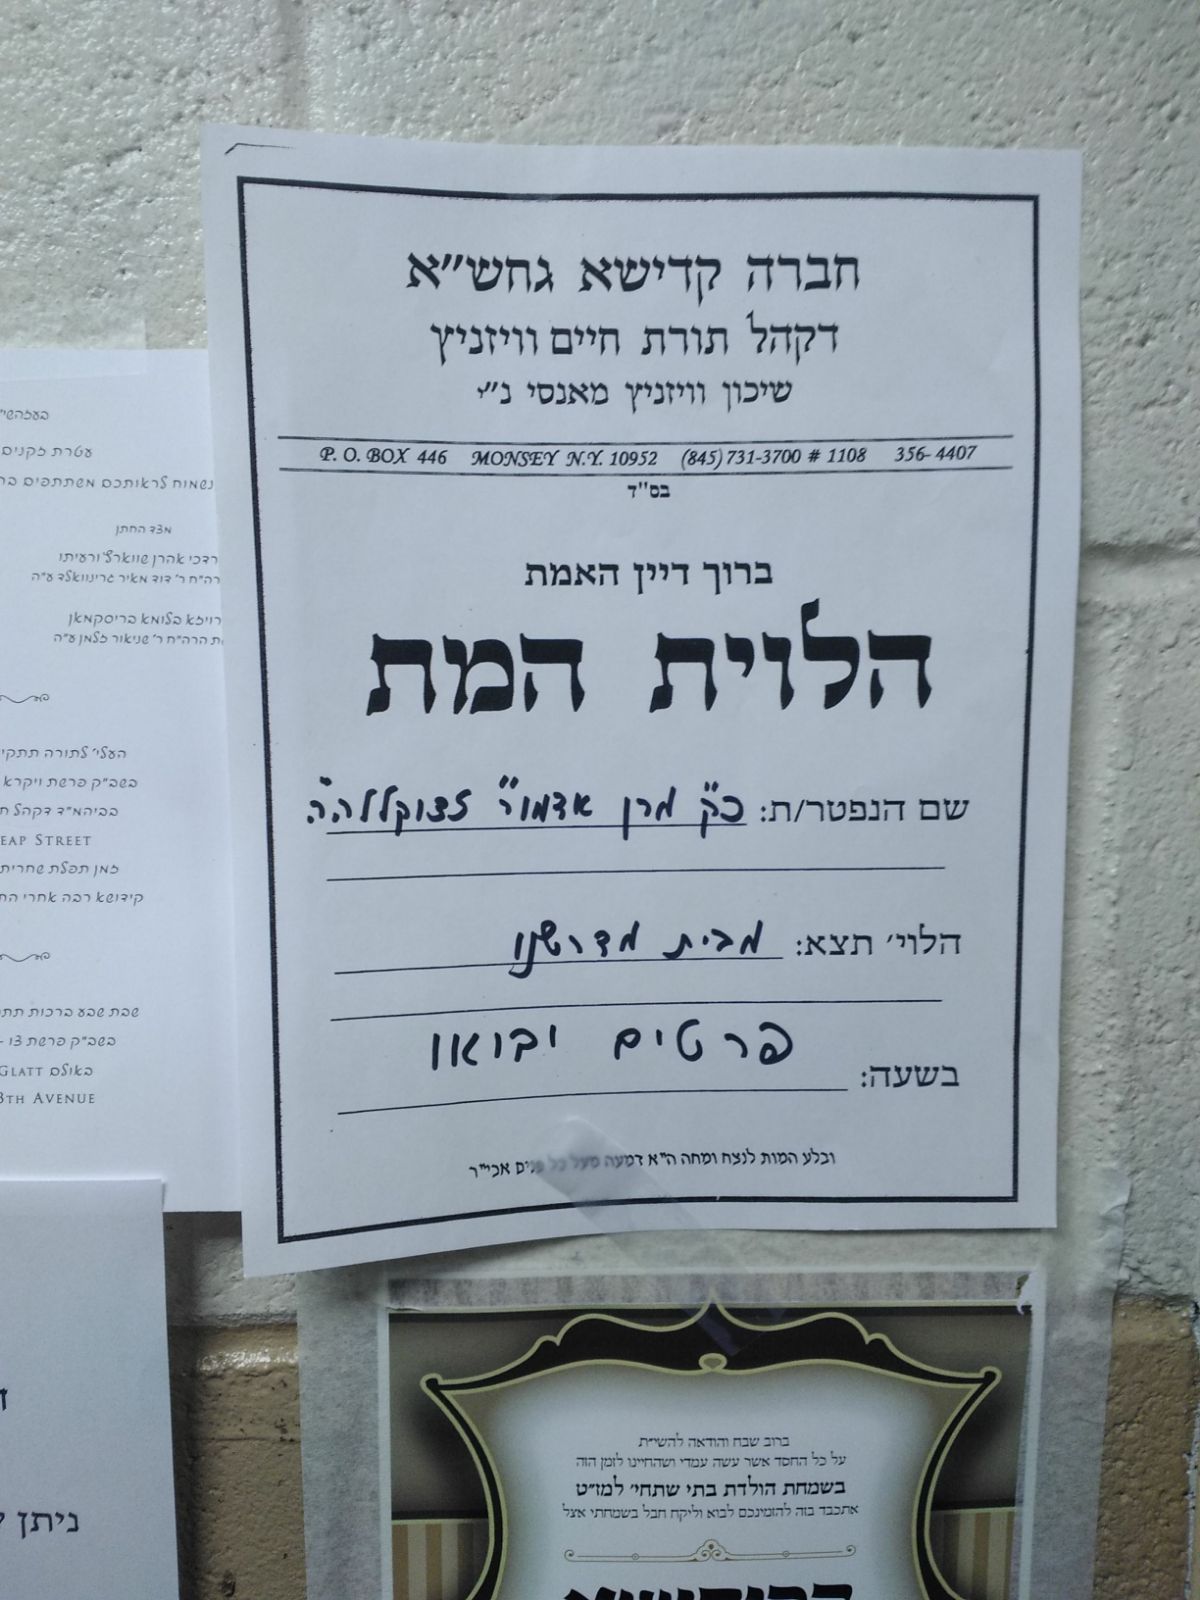 חברה קדישא גחש"א
דקהל תורת חיים וויזניץ
שיכון וויזניץ מאנסי נ"י
P. O. BOX 446 MONSEY N.Y. 10952 (845) 731-3700 # 1108 356-4407
בס"ד
ברוך דיין האמת
הלוית המת
שם הנפטר/ת: כ"ק מרן אדמו"ר זצוקללה"ה
הלוי' תצא: מבית מדרשנו
פרטים יבואו
בשעה:
ובלע המות לנצח ומחה ה"א דמעה מעל כל פנים אכי"ר
בעזהשי"
עטרת זקנים
נשמוח לראותכם משתתפים
מצד החתן
רדכי אהרן שווארץ ורעיתו
רה"ח ר' דוד מאיר גרינוואלד ע"ה
רויזא בלומא בריסקמאן
ת הרה"ח ר' שניאור זלמן ע"ה
העלי' לתורה תתקי
בשב"ק פרשת ויקרא
בביהמ"ד דקהל
EAP STREET
זמן תפלת שחרית
קידושא רבה אחרי
שבת שבע ברכות
בשב"ק פרשת צו -
באולם GLATT
3TH AVENUE
ניתן
ברוב שבח והודאה להשי"ת
על כל החסד אשר עשה עמדי ושהחיינו לזמן הזה
בשמחת הולדת בתי שתחי' למז"ט
אתכבד בזה להזמינכם לבוא וליקח חבל בשמחתי אצל